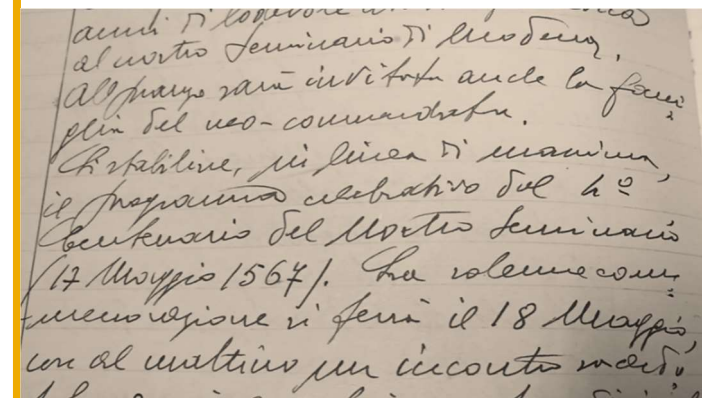 anni di lodevole
al nostro Seminario di Modena.
Al pranzo sarà invitata anche la fami-
glia del neo-commendatore.
Si stabilisce, in linea di massima,
il programma celebrativo del 4º
Centenario del Nostro Seminario
(17 Maggio 1567). La solenne com-
memorazione si farà il 18 Maggio,
con al mattino un incontro sacerdo-